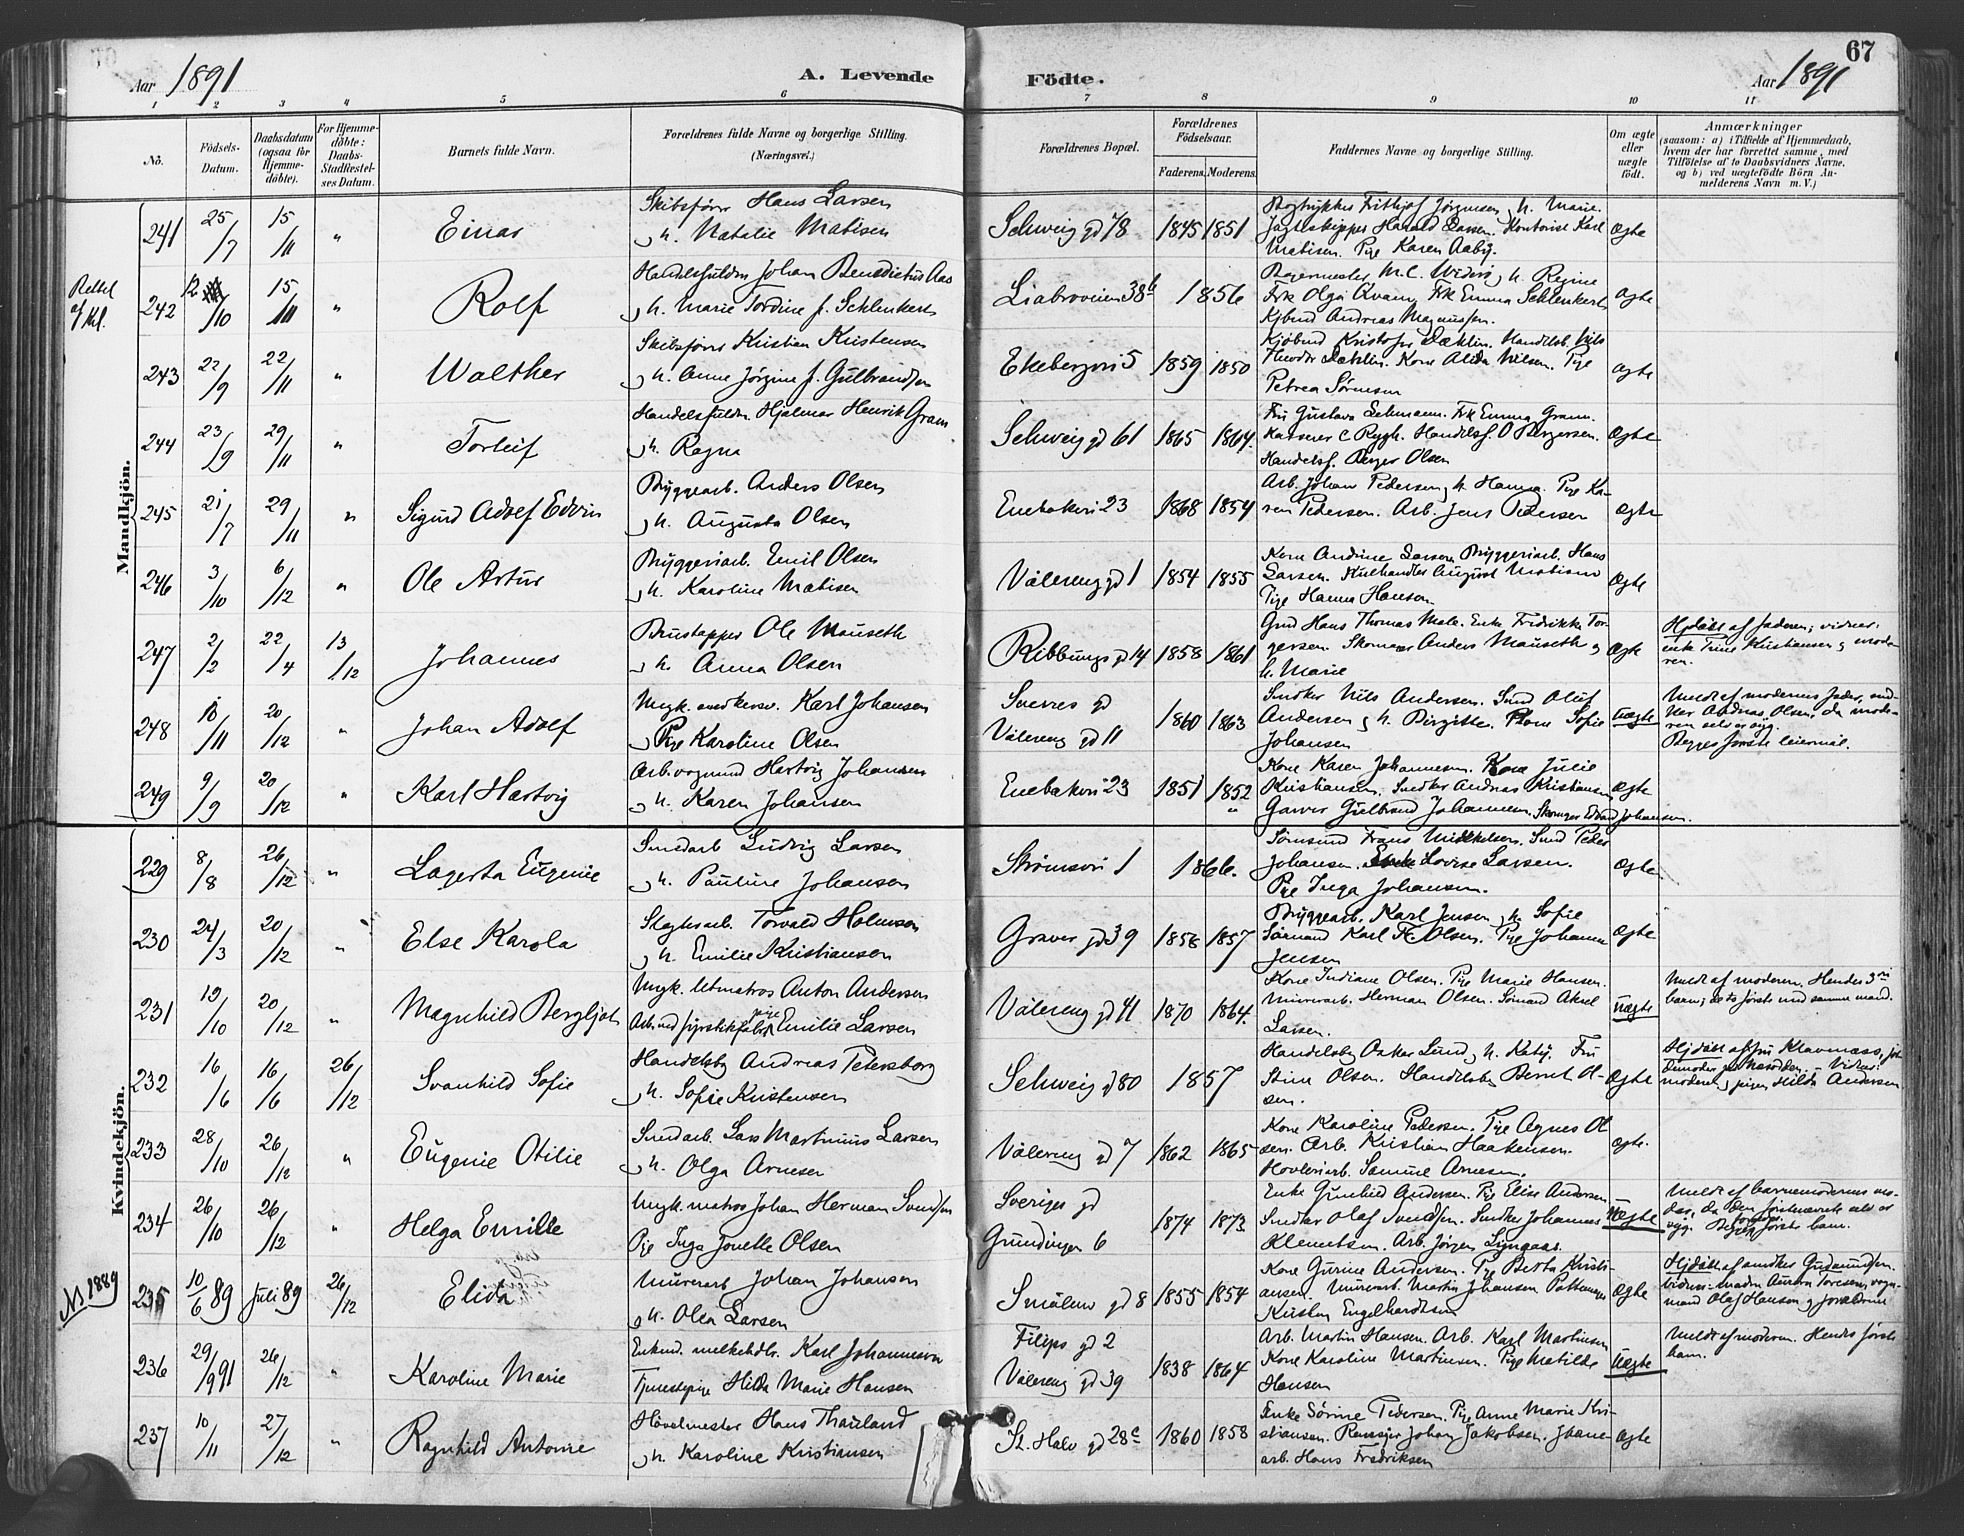 67
Aar 1891
A. Levende
Födte.
Aar 1891
1 2 3 4 5 6 7 8 9 10 11
No.
Födsels-
Datum.
Daabsdatum
(ogsaa for
Hjemme-
döbte).
For Hjemme-
döbte:
Daabs-
Stadfæstel-
ses Datum.
Barnets fulde Navn.
Forældrenes fulde Navne og borgerlige Stilling.
(Næringsvei.)
Forældrenes Bopæl.
Forældrenes
Födselsaar.
Faderens. Moderens.
Faddernes Navne og borgerlige Stilling.
Om ægte
eller
uægte
födt.
Anmærkninger
(saasom: a) i Tilfælde af Hjemmedaab,
hvem der har forrettet samme, med
Tilföielse af to Daabsvidners Navne,
og b) ved uægtefödte Börn An-
melderens Navn m. V.)
Mandkjön.
241 25/7 15/11 " Einar
Skibsfører Hans Larsen
og h. Natalie Matisen
Schweig gd 78 1845 1851
Bogtrykker Frithjof Jørgensen og h. Marie.
Jagtskipper Harald Larsen. Kontorist Karl
Matisen. Pige Karen Aaby.
Ægte
Rettet
af Kl.
242 12/10 15/11 " Rolf
Handelsfuldm Johan Benedictus Aas
og h. Marie Tordine f. Schlenkert
Liabroveien 38b 1856
Frk Olga Kvam, Frk Emma Schlenkert
Kjbmd Andreas Magnussen.
Ægte
243 22/9 22/11 " Walther
Skibsfører Kristian Kristensen
og h. Anne Jørgine f. Gulbrandsen
Ekebergvei 5 1859 1850
Kone Alida Nilsen. Pige
Petrea Sørensen
Ægte
244 23/9 29/11 " Torleif
Handelsfuldm. Hjalmar Henrik Gram
og h. Ragna
Schweig gd 61 1865 1864.
Frk Emma Gram.
Kasserer C Rygh. Handelsf. O Børgersen.
Handelsf. Børger Olsen
Ægte
245 21/7 29/11 " Sigurd Adolf Edvin
Bryggearb. Anders Olsen
og h. Augusta Olsen
Enebakvei 23 1868 1854
Arb. Johan Pedersen og h. Hanna. Pige Ka-
ren Pedersen. Arb. Jens Pedersen
Ægte
246 3/10 6/12 " Ole Artur
Bryggeriarb. Emil Olsen
og h. Karoline Matisen
Vålereng gd 1 1854 1855
Kone Andrine Larsen Bryggeriarb. Hans
Larsen. Kulhandler August Matisen
Pige Hanna Hansen
Ægte
247 2/2 22/4 13/12 Johannes
Brustapper Ole Mauseth
og h. Anna Olsen
Ribbungs gd 14 1858 1861
Hans Thomas Enke Fredrikke Tor-
gersen. Skomager Anders Mauseth og
h. Marie
Ægte
Hjdøbt af faderen; vidner:
enke Trine Kristiansen og mode-
ren.
248 10/11 20/12 " Johan Adolf
Karl Johansen
Pige Karoline Olsen
Sverres gd
Vålereng gd 11
1860 1863
Snedker Nils Andersen. Smed Oluf
Andersen og h. Birgitte. Kone Sofie
Johansen
Uægte
Meldt af moderens fader, sned-
ker Andreas Olsen, da mode-
ren selv er syg.
Begges første leiermål.
249 9/9 20/12 " Karl Hartvig
Arb. vognmd Hartvig Johansen
og h. Karen Johansen
Enebakvei 23 1851 1852
"
Kone Karen Johannesen. Kone Julie
Kristiansen. Snedker Andreas Kristiansen
Garver Gulbrand Johannesen. Skomager Edvard Johansen.
Ægte
Kvindekjön.
229 8/8 26/12 " Lagerta Eugenie
Smedarb Ludvig Larsen
og h. Pauline Johansen
Strømsvei 1 1866.
Sømand Frans Mikkelsen. Smed Peder
Johansen. Enke Lovise Larsen.
Pige Inga Johansen.
Ægte
230 24/3 20/12 " Else Karola
Torvald Holmsen
og h. Emilie Kristiansen
Graver gd 39 1856 1857
Bryggearb. Karl Jensen og h. Sofie
Sømand Karl Olsen. Pige Johanne
Jensen
Ægte
231 19/10 20/12 " Magnhild Bergljot
Ungk. letmatros Anton Andersen
Arb. ved fyrstikfabr. pige Emilie Larsen
Vålereng gd 41 1870 1864.
Kone Indiane Olsen. Pige Marie Hansen.
Murerarb. Herman Olsen. Sømand Aksel
Larsen.
Uægte
Meldt af moderen. Hendes 3die
barn; dets første med samme mand.
232 16/6 16/6 26/12 Svanhild Sofie
Handelsbg Andreas Petersborg
og h. Sofie Kristensen
Schweig gd 80 1857
Handelsbg Oskar Lund og h. Katy. Fru
Stine Olsen. Handelsbg Bernt Ol-
sen.
Ægte
Hjdøbt af fru Klavenæss, jor-
demoder på Næsodden. Vidner:
moderen og pigen Hilda Andersen
233 28/10 26/12 " Eugenie Otilie
Smedarb. Lars Martinius Larsen
og h. Olga Arnesen
Vålereng gd 7 1862 1865
Kone Karoline Pedersen. Pige Agnes Ol
sen. Arb. Kristian Haakensen.
Høvleriarb. Samuel Arnesen.
Ægte.
234 26/10 26/12 " Helga Emilie
Ungk. matros Johan Herman Svendsen
Pige Inga Jonette Olsen
Sveriges gd
Grundingen 6
1874 1873
Enke Gunhild Andersen. Pige Elise Andersen
Snedker Olaf Svendsen. Snedker Johannes
Klemetsen. Arb. Jørgen Lyngaas.
Uægte
Meldt af barnemoderens mo-
der, da den førstnævnte selv er
syg. Begge forældres første barn.
No 1889
235 10/6 89 Juli 89 26/12 Elida
Murerarb Johan Johansen
og h. Olea Larsen
Smålens gd 8 1855 1854
Kone Gurine Andersen. Pige Berta Kristi-
ansen. Murerarb. Martin Johansen Pottemager
Kristen Engelhardtsen
Ægte
Hjdøbt af snedker Gudmundsen.
vidner: madm Aurora Toresen, vogn-
mand Olaf Hansen og forældrene
236 29/9 91 26/12 " Karoline Marie
Enkemd. melkehdlr. Karl Johannesen
Tjenestepige Hilda Marie Hansen
Filips gd 2
Vålereng gd 39
1838 1864
Arb. Martin Hansen. Arb. Karl Martinsen
Kone Karoline Martinsen. Pige Matilde
Hansen
Uægte
Meldt af moderen. Hendes første
barn.
237 10/11 27/12 " Ragnhild Antonie
Høvelmester Hans Thauland
og h. Karoline Kristiansen
St. Halv gd 28c 1860 1858
Enke Sørine Pedersen. Pige Anne Marie Kri-
stiansen. Rensejer Johan Jakobsen.
arb. Hans Fredriksen
Ægte